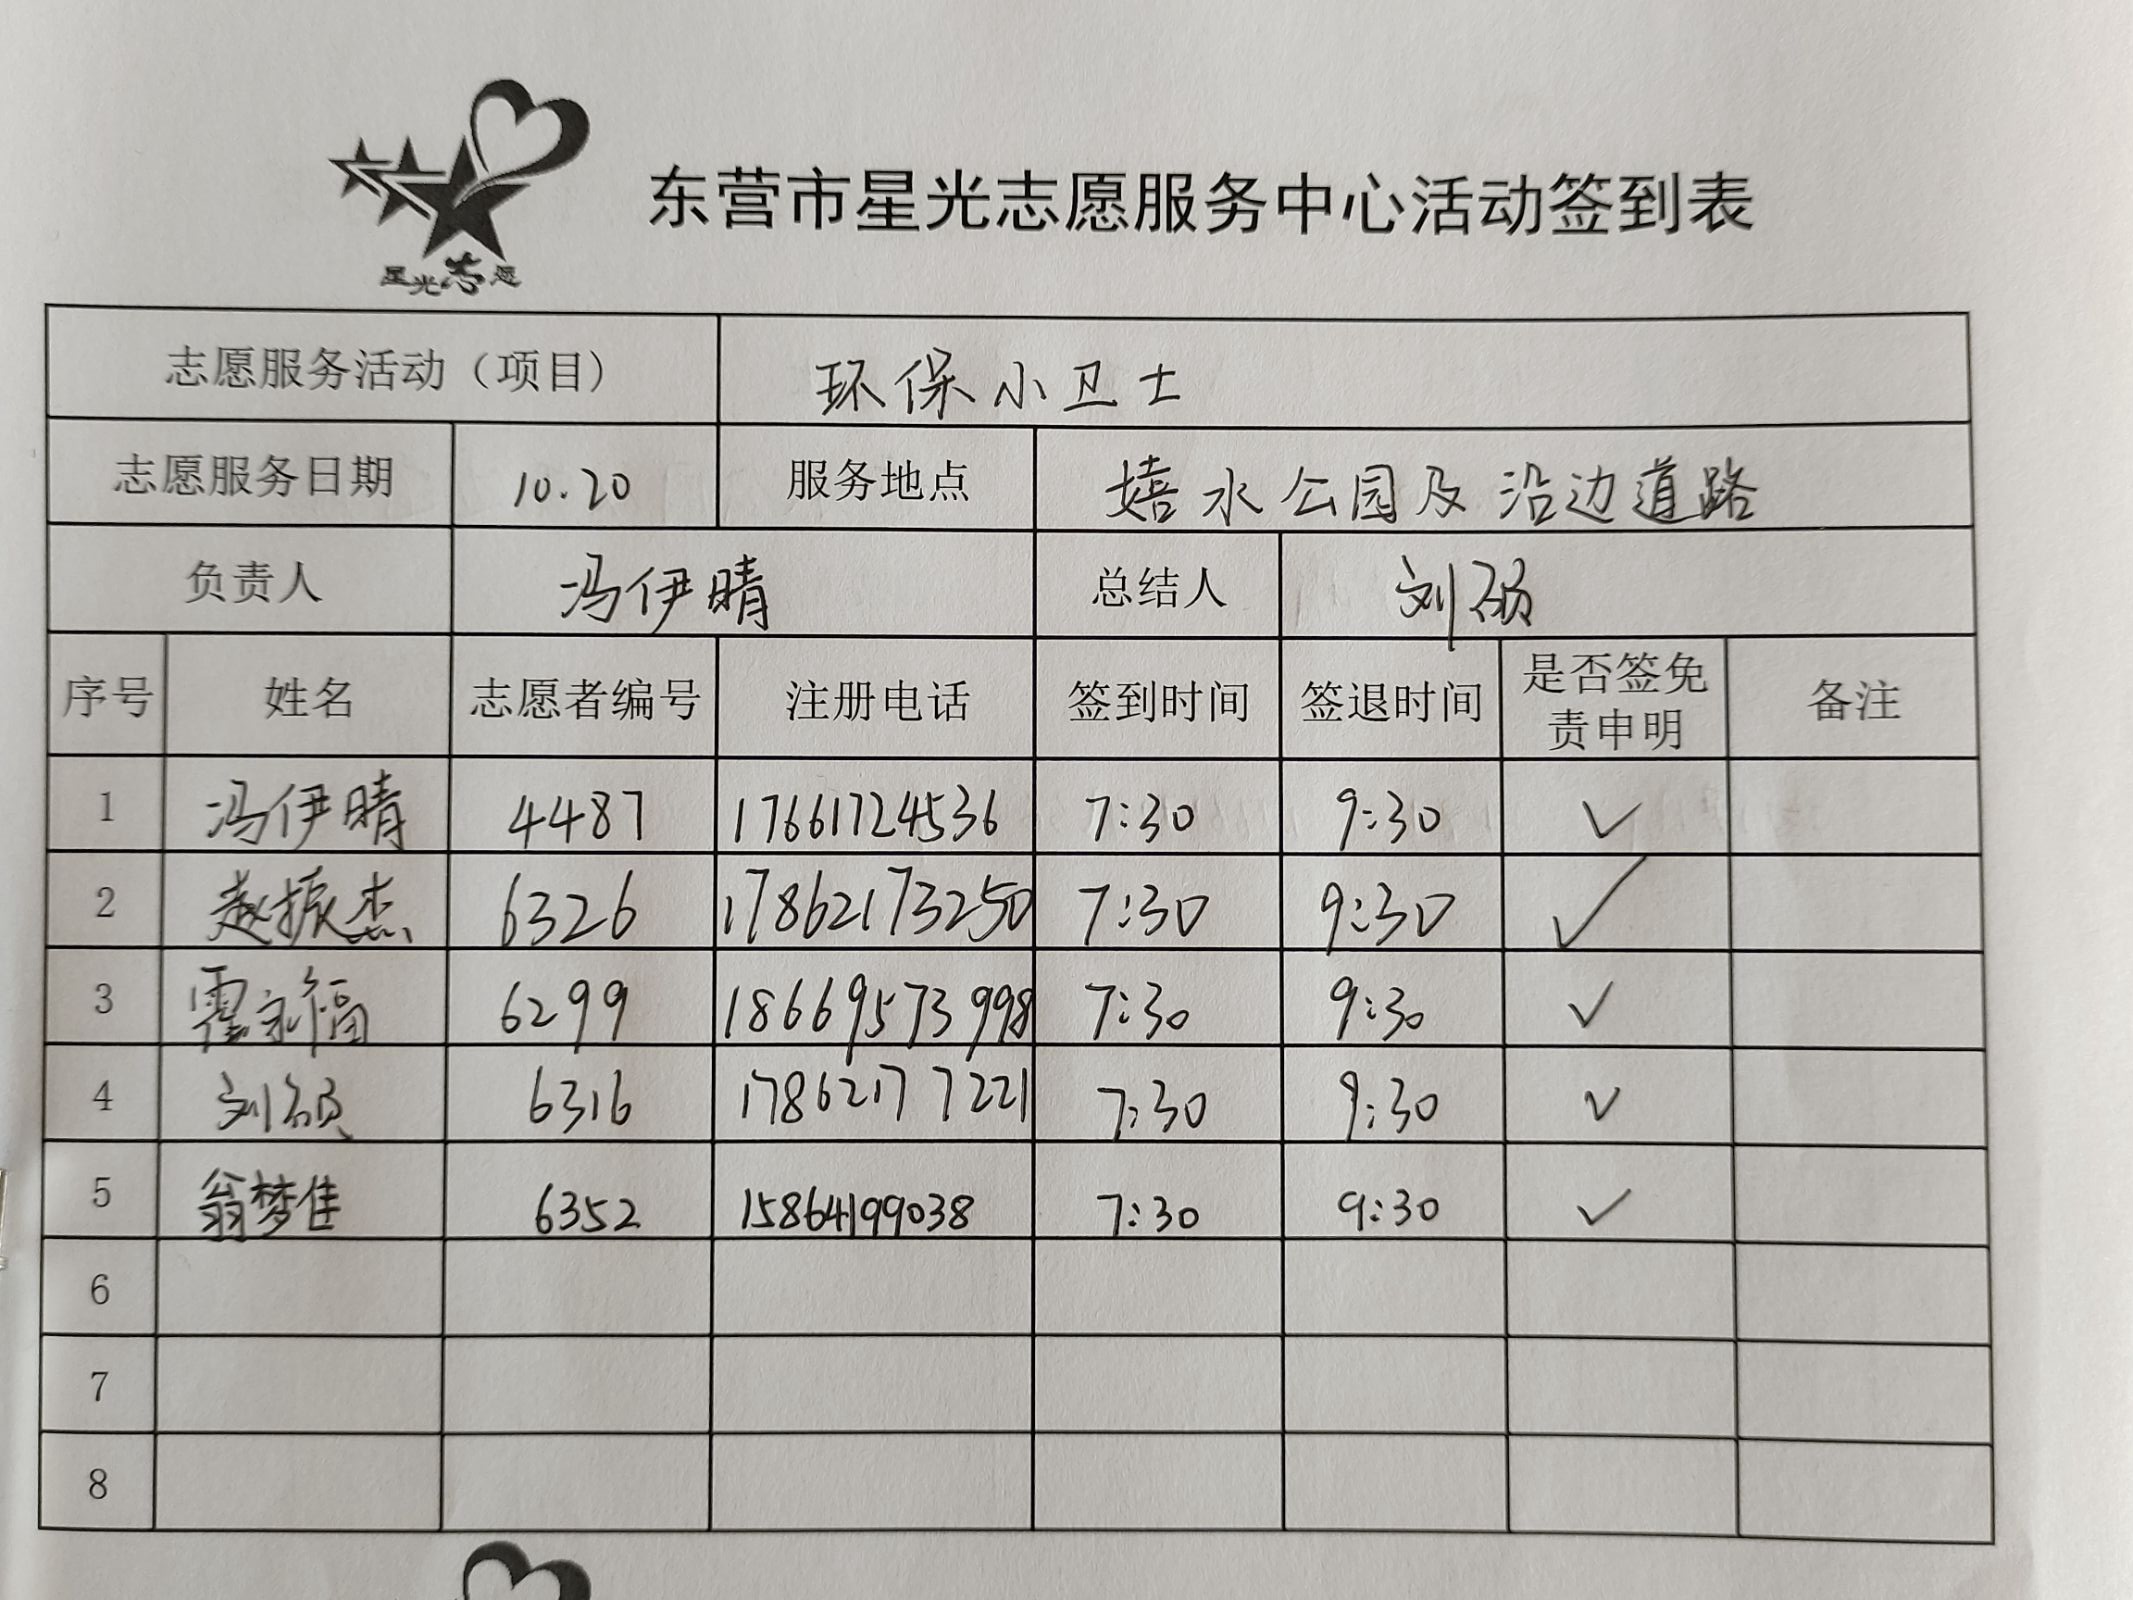 星光志愿
东营市星光志愿服务中心活动签到表
志愿服务活动（项目） 环保小卫士
志愿服务日期 10.20 服务地点 嬉水公园及沿边道路
负责人 冯伊晴 总结人 刘硕
序号 姓名 志愿者编号 注册电话 签到时间 签退时间 是否签免责申明 备注
1 冯伊晴 4487 17661724536 7:30 9:30 ✓
2 赵振杰 6326 17862173250 7:30 9:30 ✓
3 霍永福 6299 18669573998 7:30 9:30 ✓
4 刘硕 6316 17862177221 7:30 9:30 ✓
5 翁梦佳 6352 15864199038 7:30 9:30 ✓
6
7
8